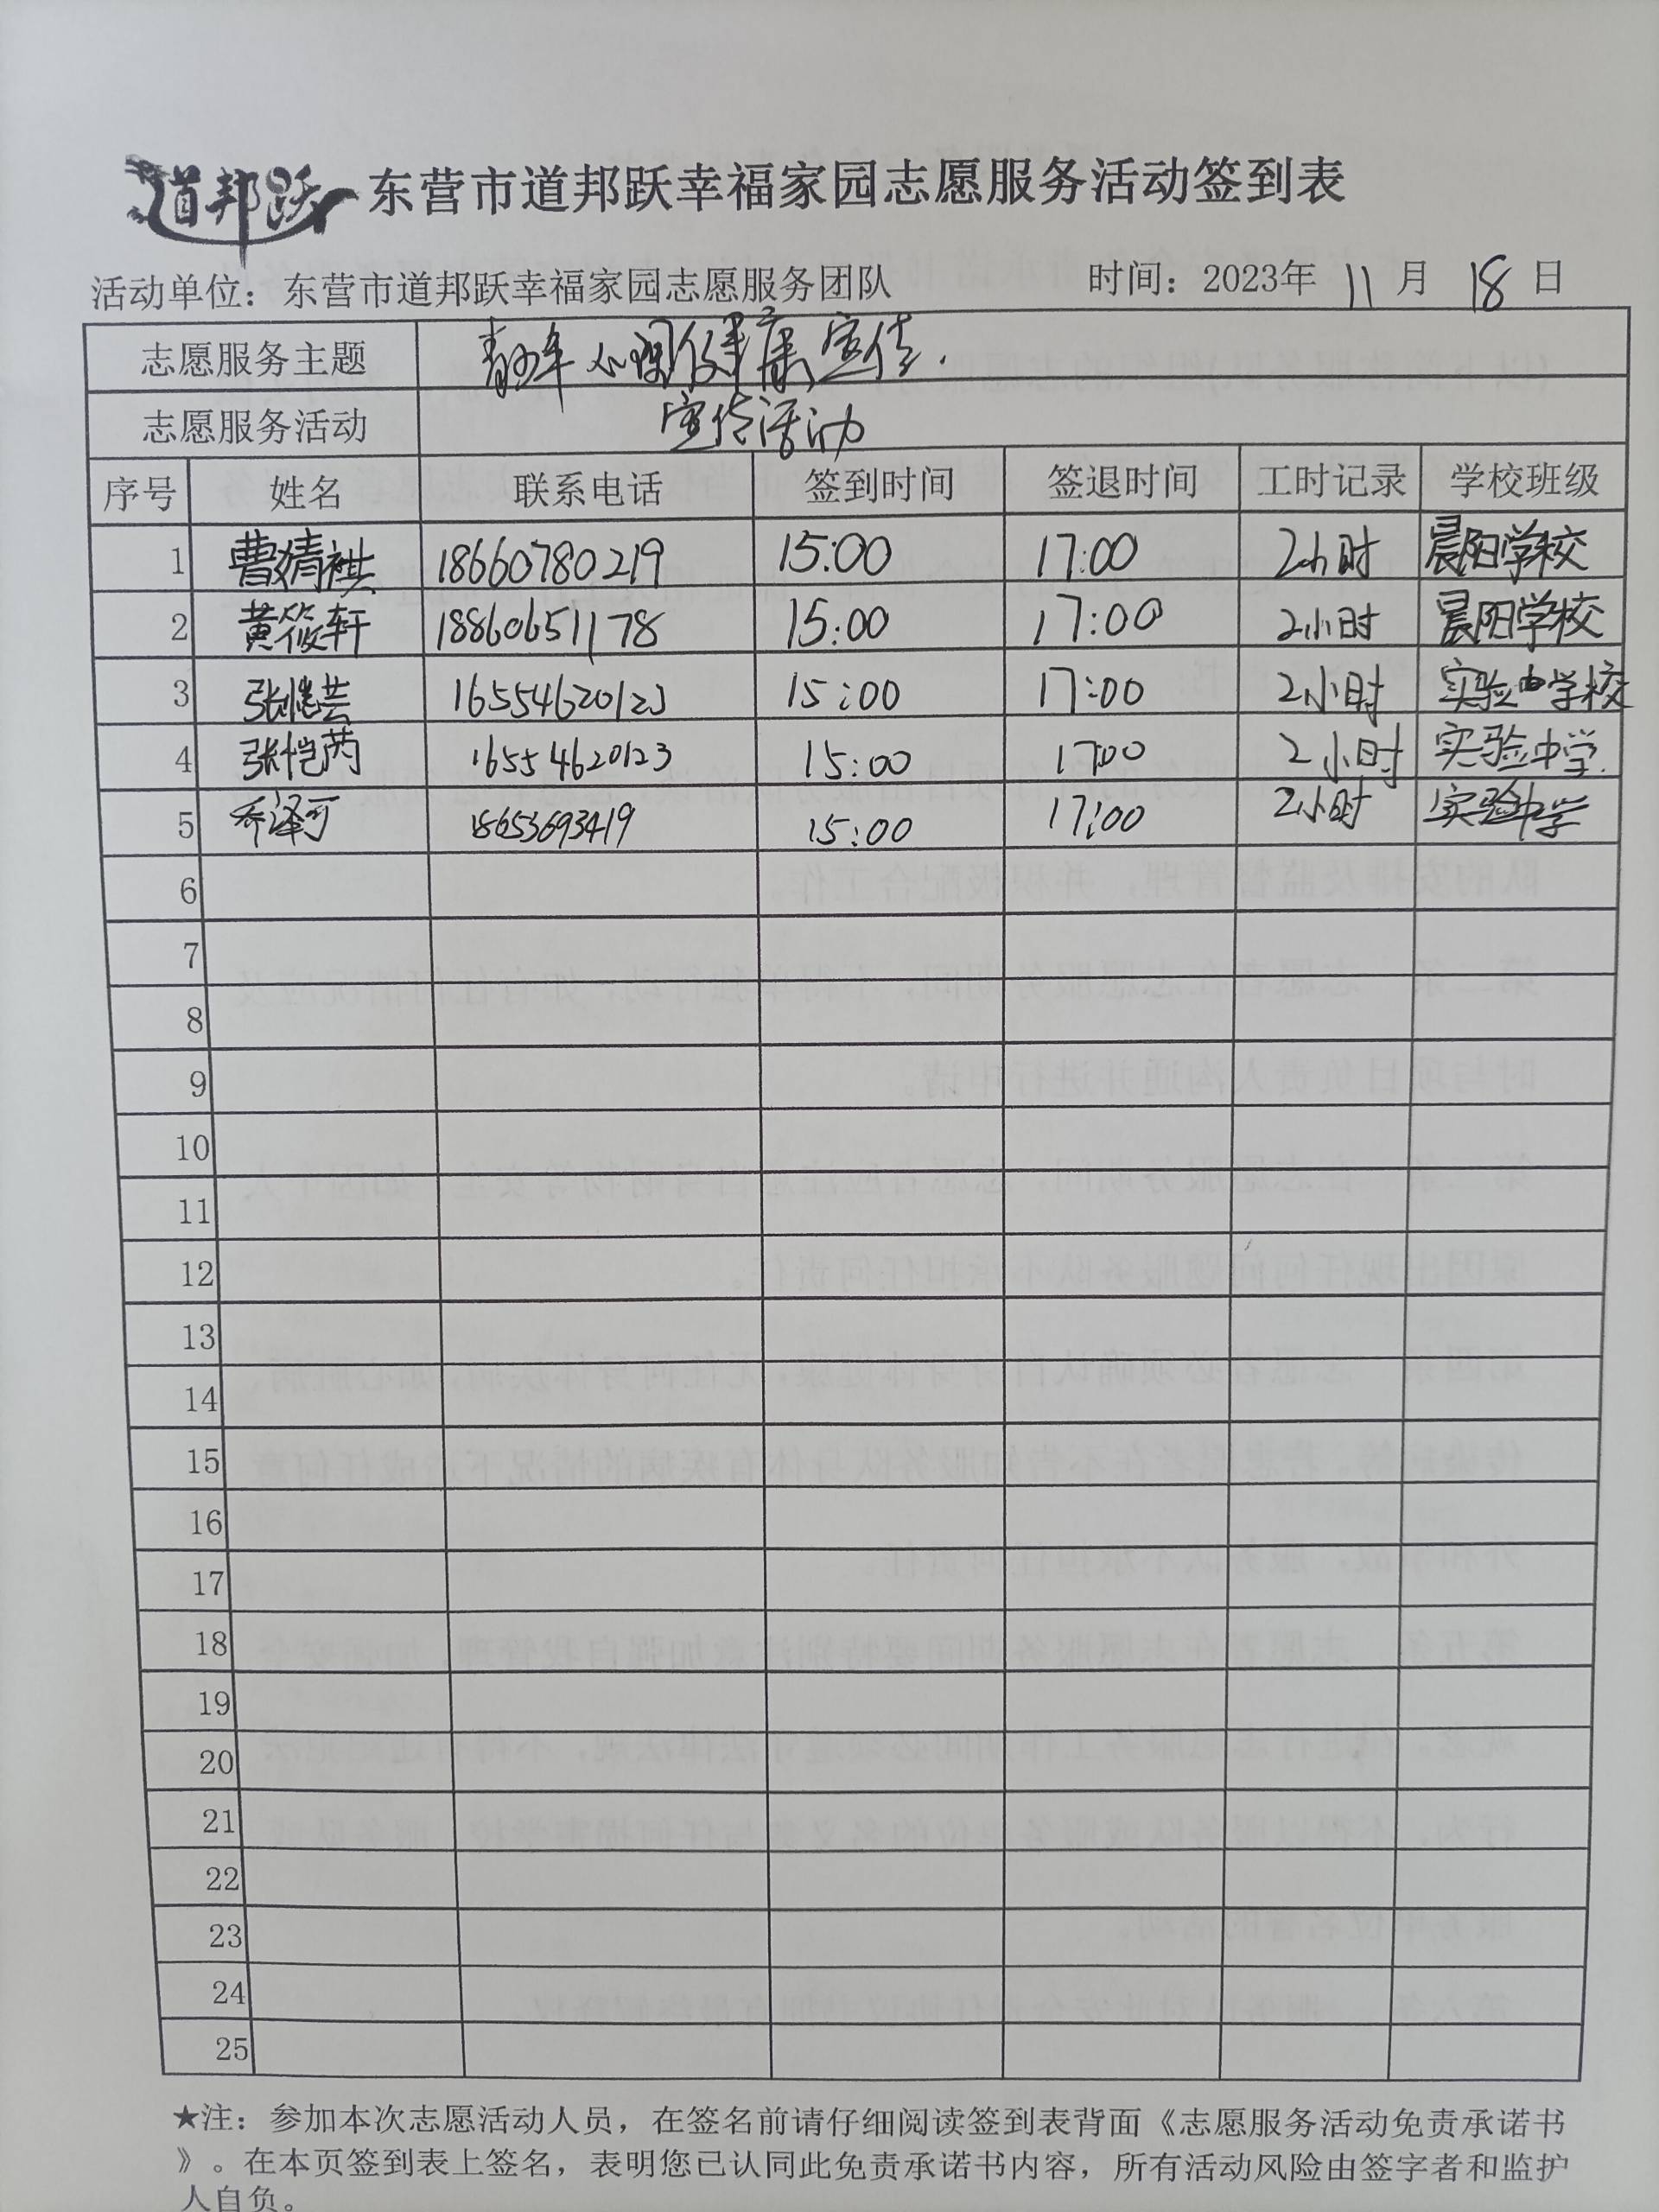 道邦跃 东营市道邦跃幸福家园志愿服务活动签到表
活动单位：东营市道邦跃幸福家园志愿服务团队 时间：2023年 11 月 18 日
志愿服务主题 青少年心理健康宣传.
志愿服务活动 宣传活动
序号 姓名 联系电话 签到时间 签退时间 工时记录 学校班级
1 曹婧祺 18660780219 15:00 17:00 2小时 晨阳学校
2 黄筱轩 18860651178 15:00 17:00 2小时 晨阳学校
3 张恺芸 16554620123 15:00 17:00 2小时 实验中学校
4 张恺芮 16554620123 15:00 17:00 2小时 实验中学.
5 乔泽可 18653693419 15:00 17:00 2小时 实验中学
6
7
8
9
10
11
12
13
14
15
16
17
18
19
20
21
22
23
24
25
★注：参加本次志愿活动人员，在签名前请仔细阅读签到表背面《志愿服务活动免责承诺书
》。在本页签到表上签名，表明您已认同此免责承诺书内容，所有活动风险由签字者和监护
人自负。